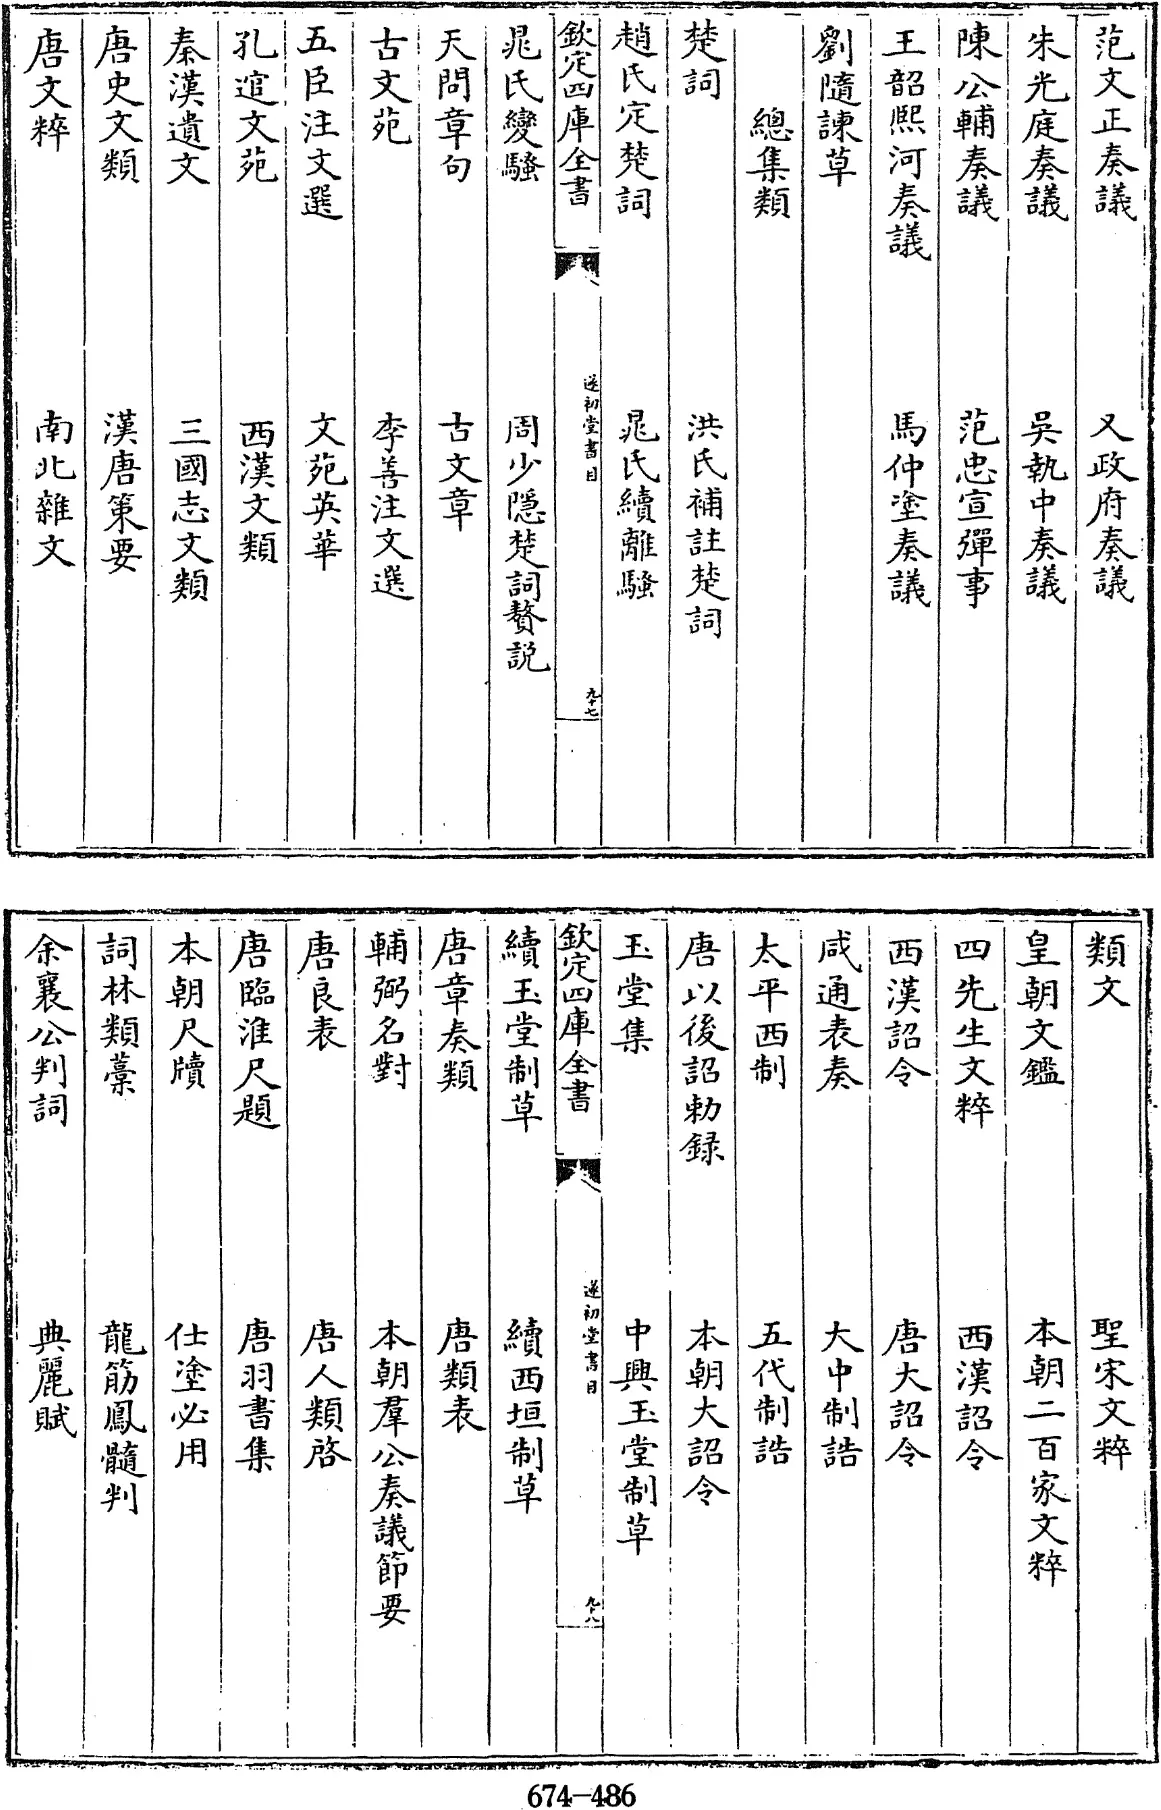 范文正奏議　又政府奏議
朱光庭奏議　吳執中奏議
陳公輔奏議　范忠宣彈事
王韶熙河奏議　馬仲塗奏議
劉隨諫草
總集類
楚詞　洪氏補註楚詞
趙氏定楚詞　晁氏續離騷
欽定四庫全書　遂初堂書目　九十七
晁氏變騷　周少隱楚詞贅説
天問章句　古文章
古文苑　李善注文選
五臣注文選　文苑英華
孔逭文苑　西漢文類
秦漢遺文　三國志文類
唐史文類　漢唐策要
唐文粹　南北雜文
類文　聖宋文粹
皇朝文鑑　本朝二百家文粹
四先生文粹　西漢詔令
西漢詔令　唐大詔令
咸通表奏　大中制誥
太平西制　五代制誥
唐以後詔勅録　本朝大詔令
玉堂集　中興玉堂制草
欽定四庫全書　遂初堂書目　九十八
續玉堂制草　續西垣制草
唐章奏類　唐類表
輔弼名對　本朝羣公奏議節要
唐良表　唐人類啓
唐臨淮尺題　唐羽書集
本朝尺牘　仕塗必用
詞林類藁　龍筋鳳髓判
余襄公判詞　典麗賦
674-486